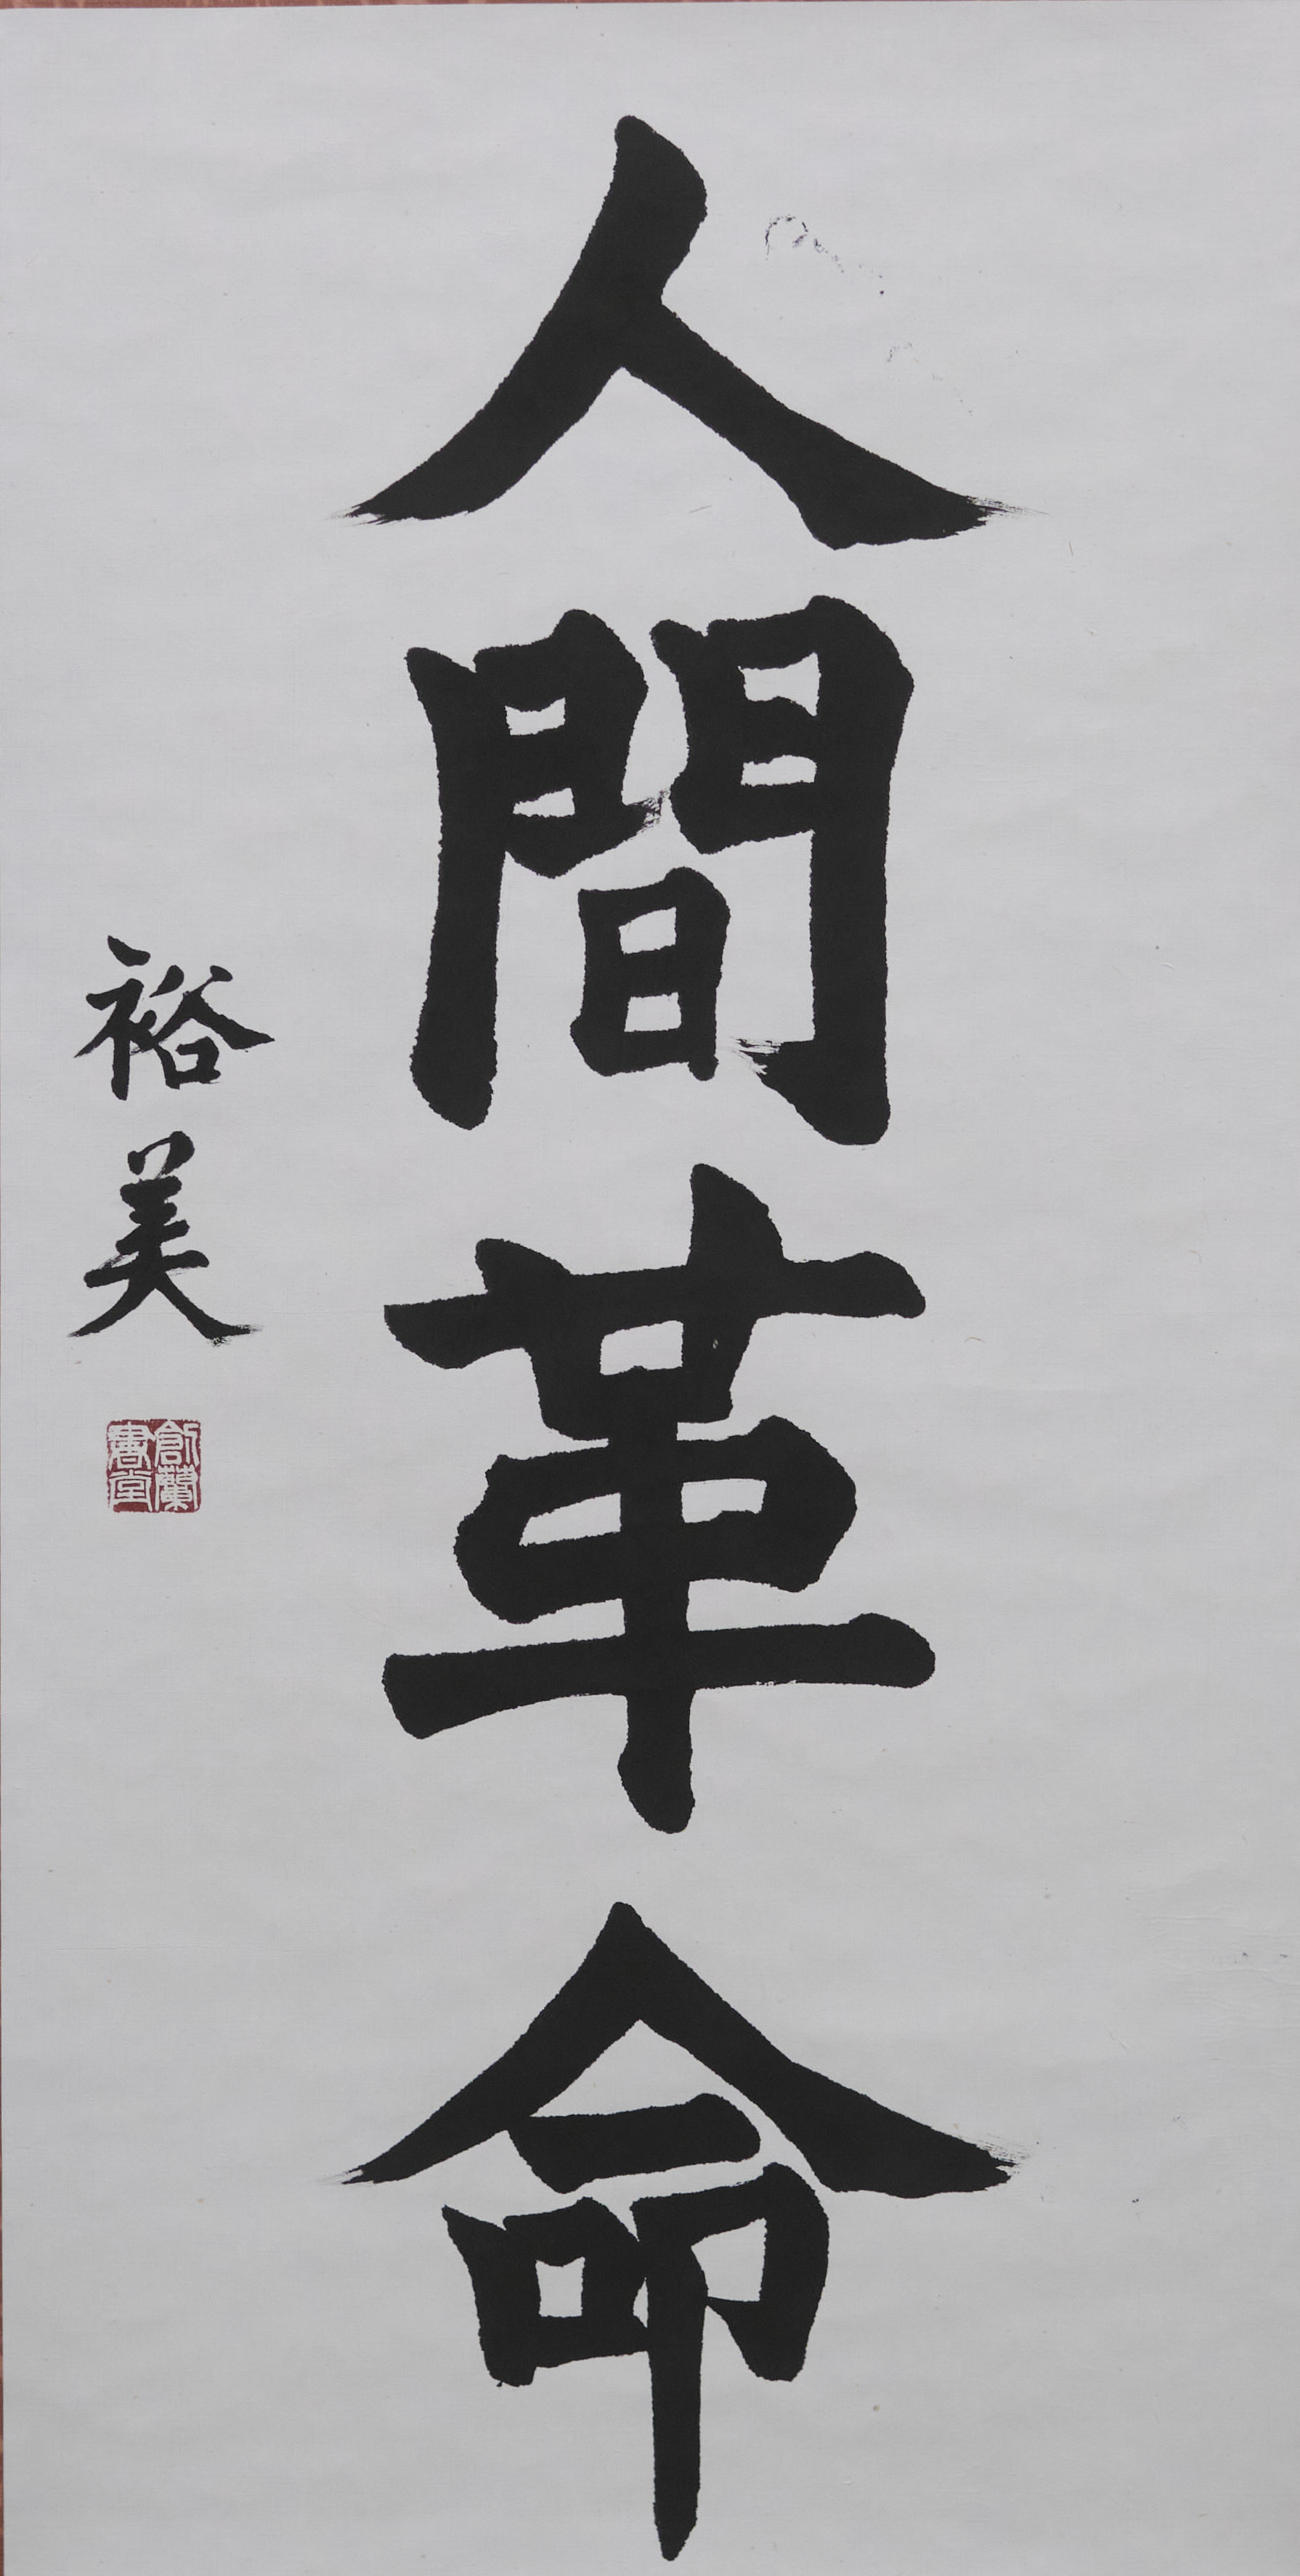 人間革命
裕美
創蘭
書堂